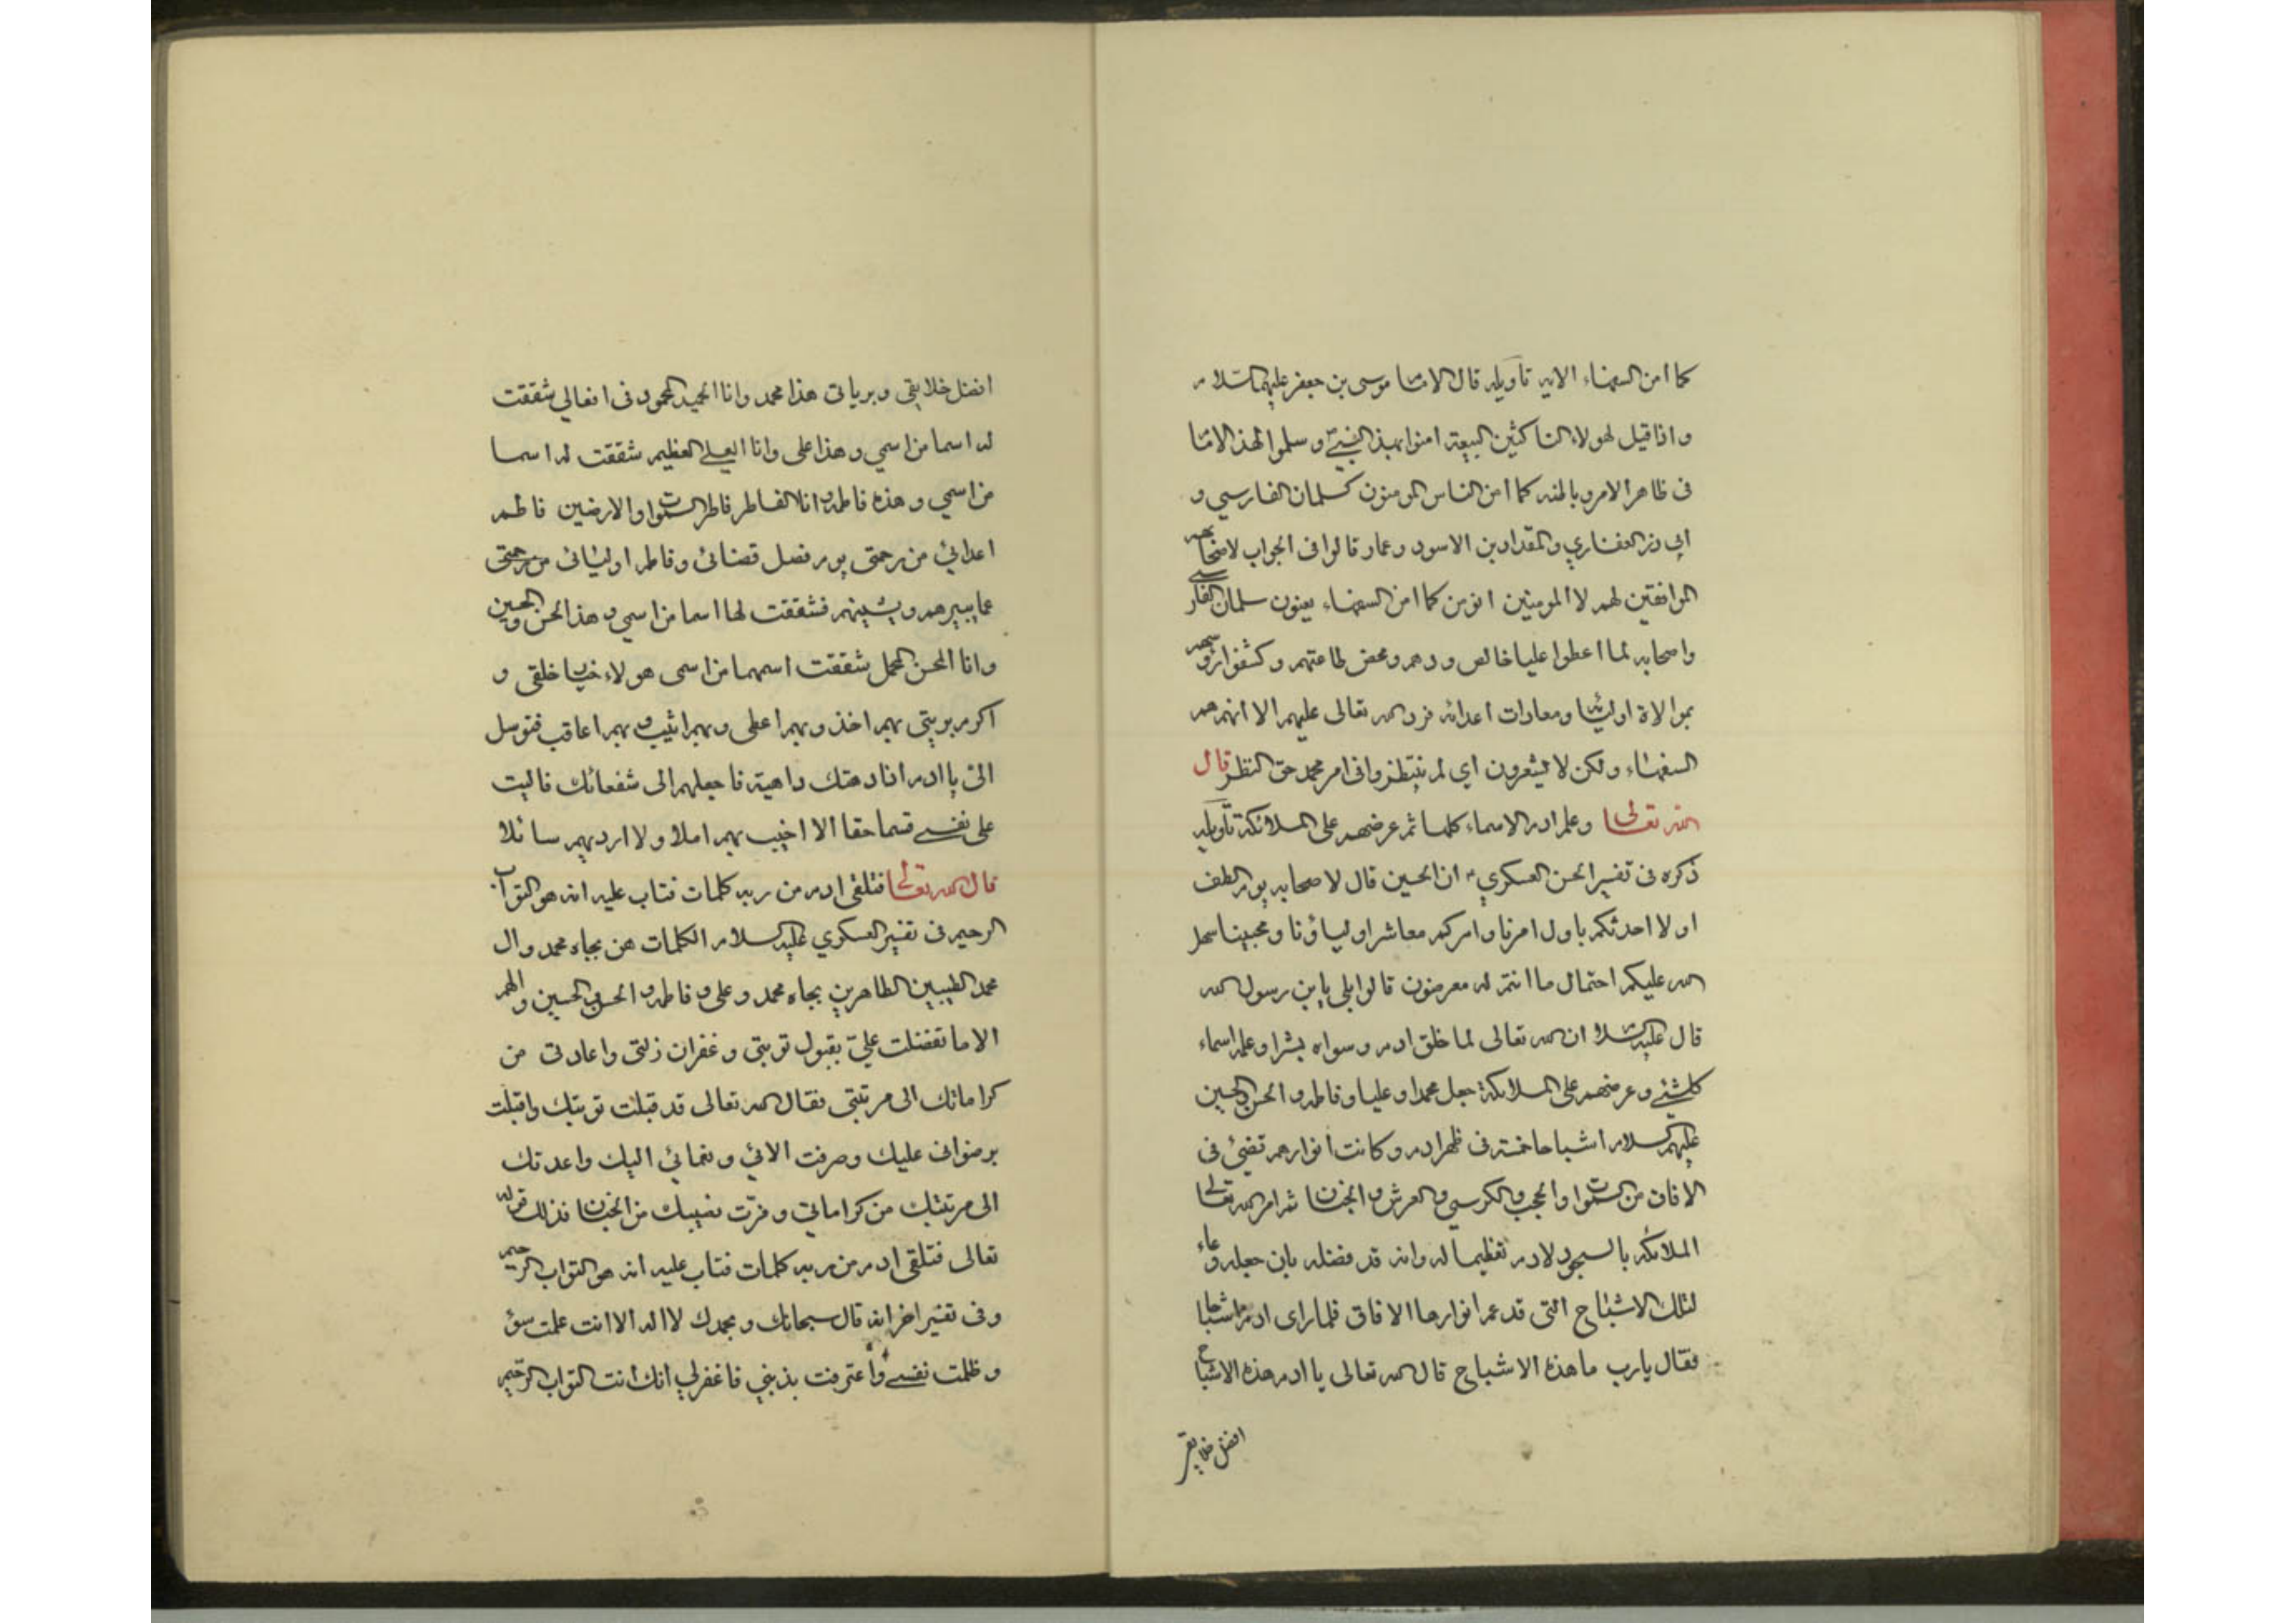 كما امن السفهاء الايه تاويله قال الامام موسى بن جعفر عليهما السلام
واذا قيل لهولاء الناكثين البيعة امنوا بهذا النبي وسلموا لهذا الامام
فى ظاهر الامر وباطنه كما امن الناس المومنون كسلمان الفارسي و
ابي ذر الغفاري والمقداد بن الاسود وعمار قالوا فى الجواب لاصحابهم
الموافقين لهم لا المومنين انومن كما امن السفهاء يعنون سلمان الفارسي
واصحابه لما اعطوا عليا خالص ودهم ومحض طاعتهم وكشفوا رؤسهم
بموالاة اوليائه ومعادات اعدائه فرد الله تعالى عليهم الا انهم هم
السفهاء ولكن لا يشعرون اي لم ينتظروا فى امر محمد حق النظر قال
الله تعالى وعلم ادم الاسماء كلها ثم عرضهم على الملائكة تأويله
ذكره فى تفسير الحسن العسكري ان الحسين قال لاصحابه يوم الطف
اولا احدثكم باول امرنا وامركم معاشر اولياؤنا ومحبينا سهل
الله عليكم احتمال ما انتم له معرضون قالوا بلى يابن رسول الله
قال عليه السلام ان الله تعالى لما خلق ادم وسواه بشرا وعلمه اسماء
كلشئ وعرضهم على الملائكة جعل محمدا وعليا وفاطمه والحسن والحسين
عليهم السلام اشباحا خمسة فى ظهر ادم وكانت انوارهم تضئ فى
الافاق من السموات والحجب والكرسي والعرش والجنان ثم امر الله تعالى
الملائكه بالسجود لادم تعظيما له وانه قد فضله بان جعله وعاء
لتلك الاشباح التى قد عم انوارها الافاق فلما راى ادم اشباحا
فقال يارب ما هذه الاشباح قال الله تعالى يا ادم هذه الاشباح
افضل خلايقى
افضل خلايقى وبرياتى هذا محمد وانا الحميد المحمود فى افعالي شققت
له اسما من اسمي وهذا على وانا العلي العظيم شققت له اسما
من اسمي وهذه فاطمه وانا الفاطر فاطر السموات والارضين فاطم
اعدائي من رحمتى يوم فصل قضائى وفاطم اوليائى من رحمتى
عما يبيرهم ويشينهم فشققت لها اسما من اسمي وهذا الحسن والحسين
وانا المحسن المجمل شققت اسمهما من اسمى هولاء خيار خلقى و
اكرم بريتى بهم اخذ وبهم اعطى وبهم اثيب وبهم اعاقب فتوسل
الىّ يا ادم اذا دهتك داهية فاجعلهم الى شفعائك فاليت
على نفسي قسما حقا الا اخيب بهم املا ولا ارد بهم سائلا
قال الله تعالى فتلقى ادم من ربه كلمات فتاب عليه انه هو التواب
الرحيم فى تفسير العسكري عليه السلام الكلمات هن بجاه محمد وال
محمد الطيبين الطاهرين بجاه محمد وعلى وفاطمه والحسن والحسين والهم
الا ما تفضلت عليّ بقبول توبتى وغفران زلتى واعادتى من
كراماتك الى مرتبتى فقال الله تعالى قد قبلت توبتك واقبلت
برضوانى عليك وصرفت الائي ونعمائي اليك واعدتك
الى مرتبتك من كراماتى وفرت نصيبك من الجنان فذلك قوله
تعالى فتلقى ادم من ربه كلمات فتاب عليه انه هو التواب الرحيم
وفى تفسير اخر انه قال سبحانك وبحمدك لا اله الا انت عملت سؤ
وظلمت نفسي واعترفت بذنبي فاغفر لي انك انت التواب الرحيم